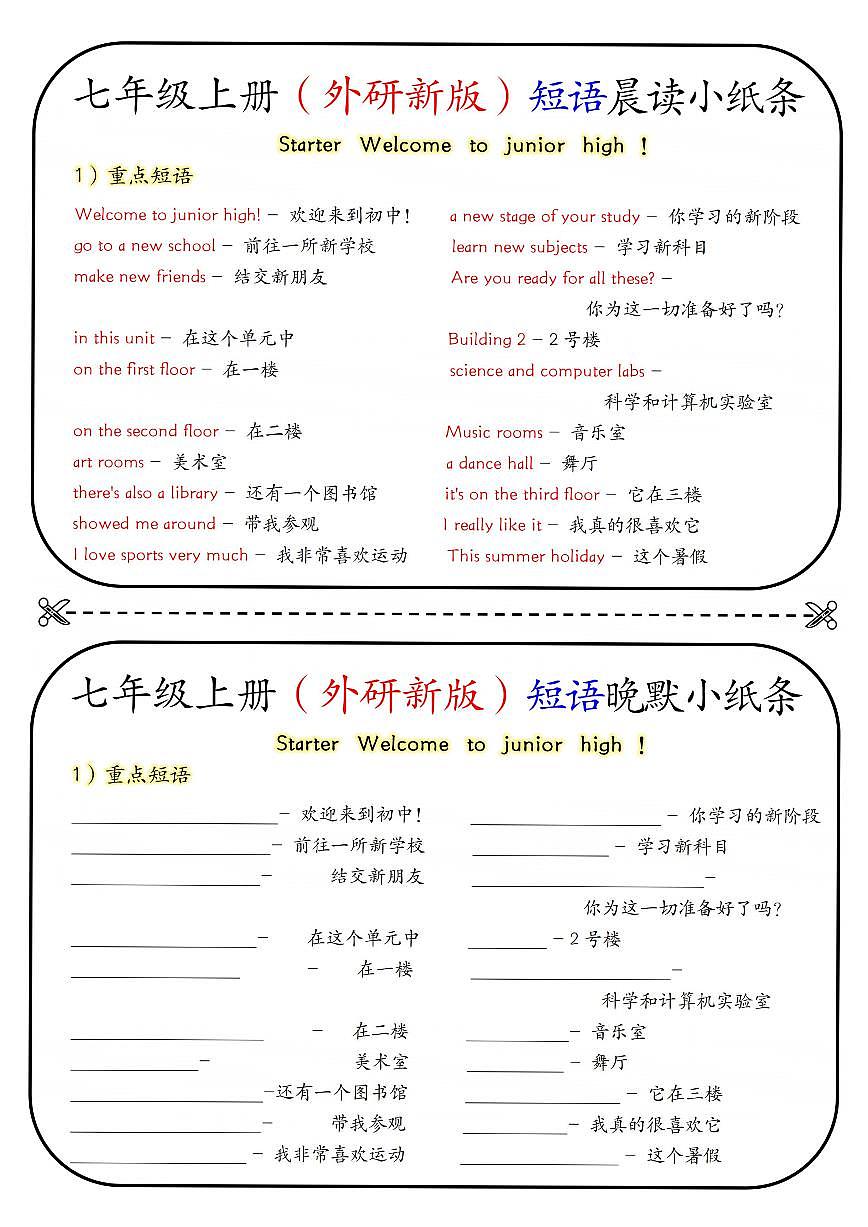 七年级上册（外研新版）短语晨读小纸条
Starter Welcome to junior high !
1）重点短语
Welcome to junior high! - 欢迎来到初中! a new stage of your study - 你学习的新阶段
go to a new school - 前往一所新学校 learn new subjects - 学习新科目
make new friends - 结交新朋友 Are you ready for all these? -
你为这一切准备好了吗?
in this unit - 在这个单元中 Building 2 - 2 号楼
on the first floor - 在一楼 science and computer labs -
科学和计算机实验室
on the second floor - 在二楼 Music rooms - 音乐室
art rooms - 美术室 a dance hall - 舞厅
there's also a library - 还有一个图书馆 it's on the third floor - 它在三楼
showed me around - 带我参观 I really like it - 我真的很喜欢它
I love sports very much - 我非常喜欢运动 This summer holiday - 这个暑假
七年级上册（外研新版）短语晚默小纸条
Starter Welcome to junior high !
1）重点短语
- 欢迎来到初中! - 你学习的新阶段
- 前往一所新学校 - 学习新科目
- 结交新朋友 -
你为这一切准备好了吗?
- 在这个单元中 - 2 号楼
- 在一楼 -
科学和计算机实验室
- 在二楼 - 音乐室
- 美术室 - 舞厅
-还有一个图书馆 - 它在三楼
- 带我参观 - 我真的很喜欢它
- 我非常喜欢运动 - 这个暑假